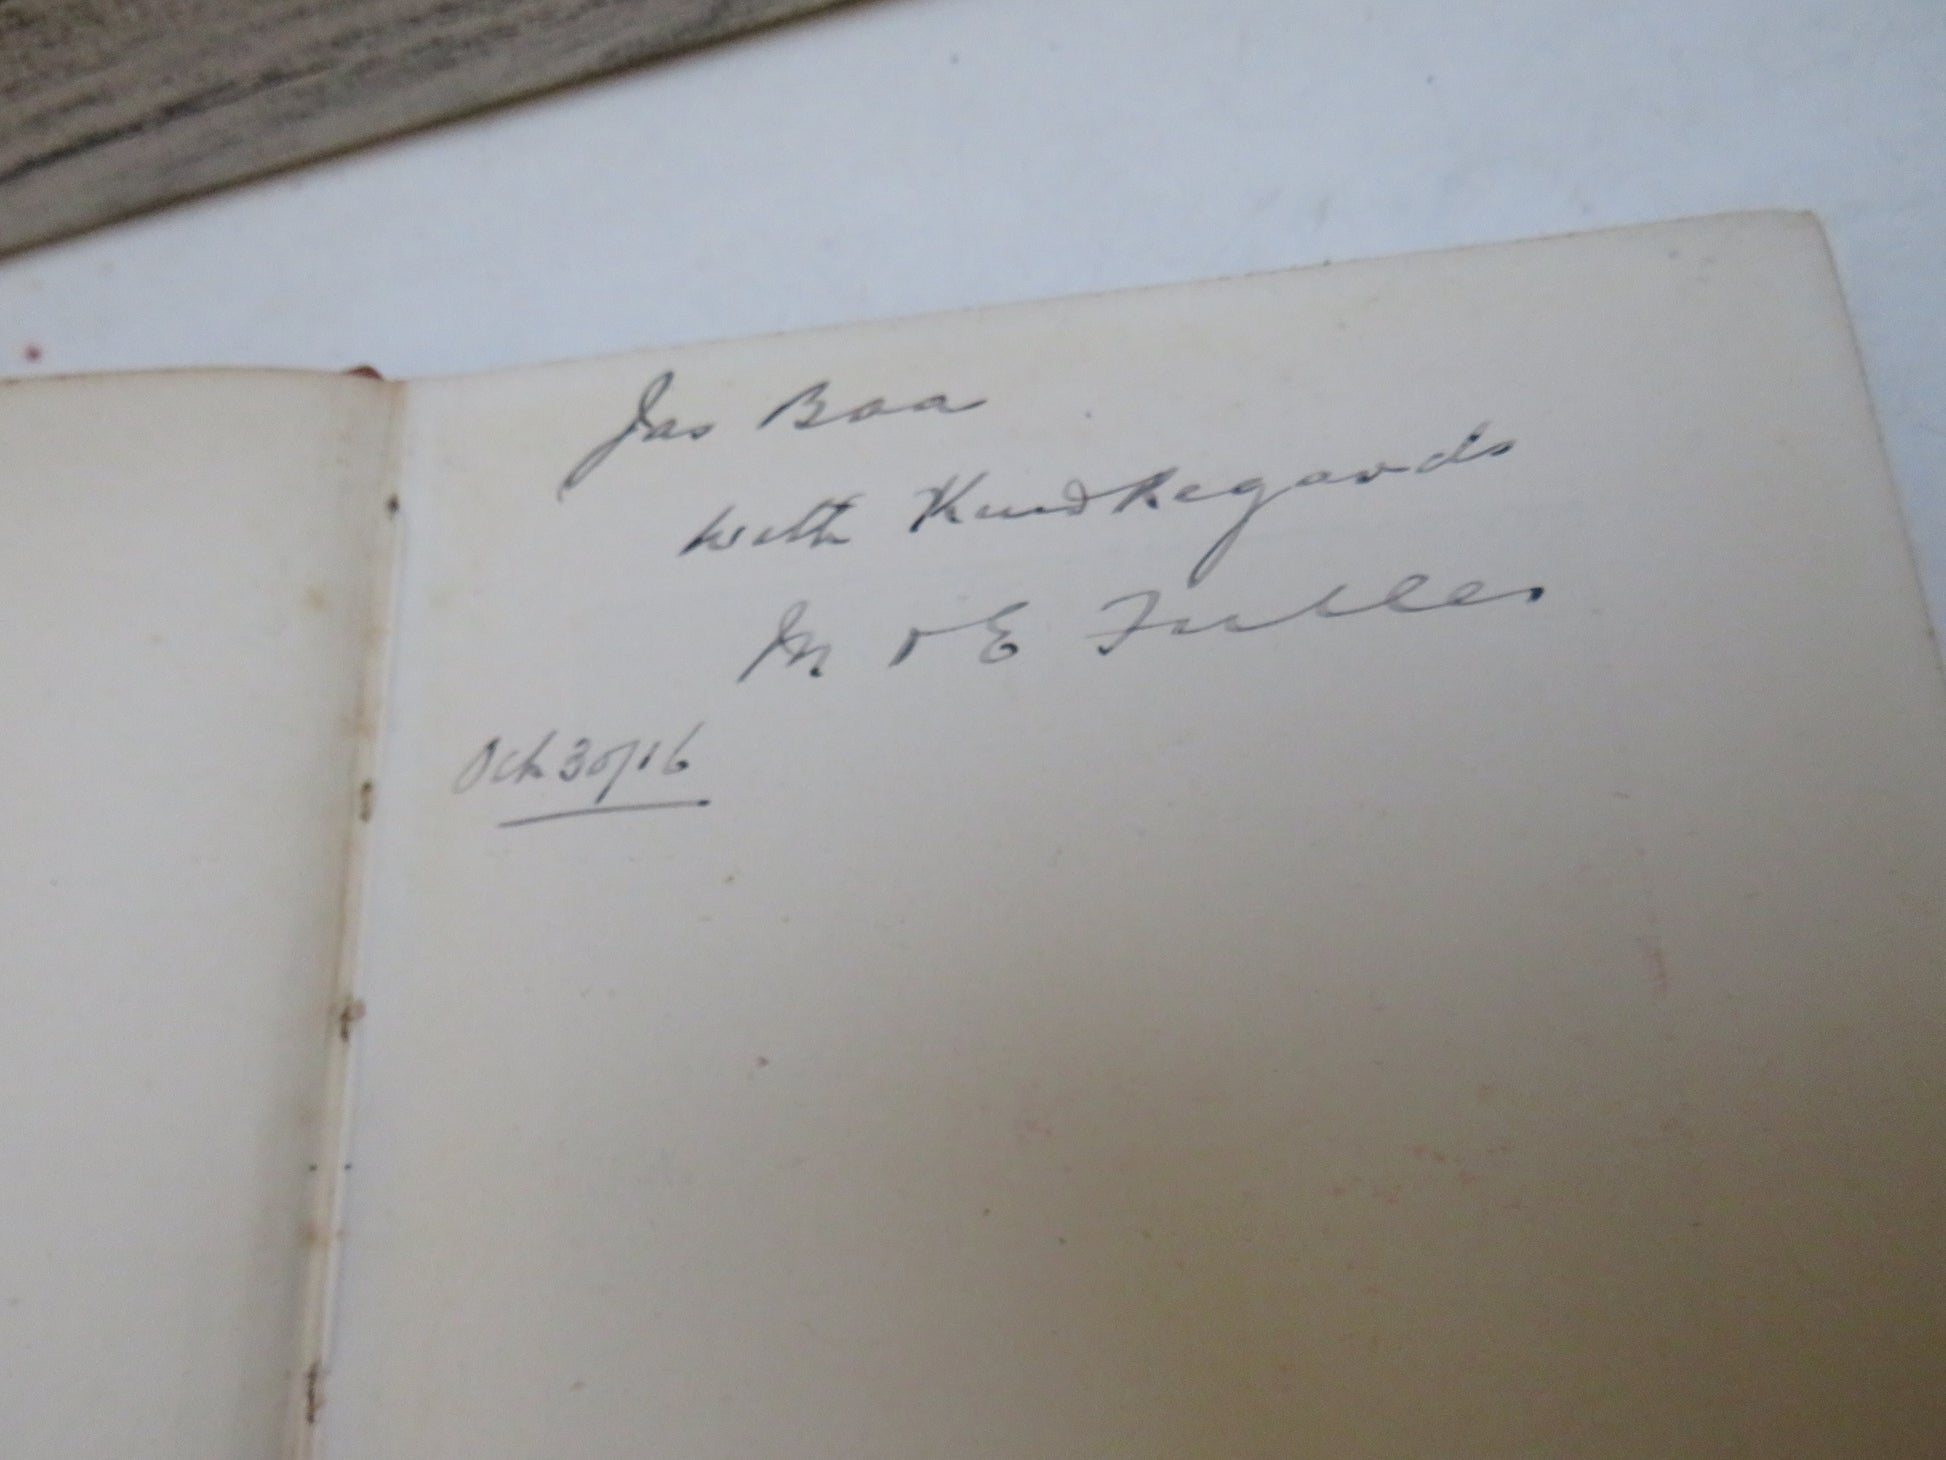 Jas Baa
with Kind Regards
M & E
Oct 30/16